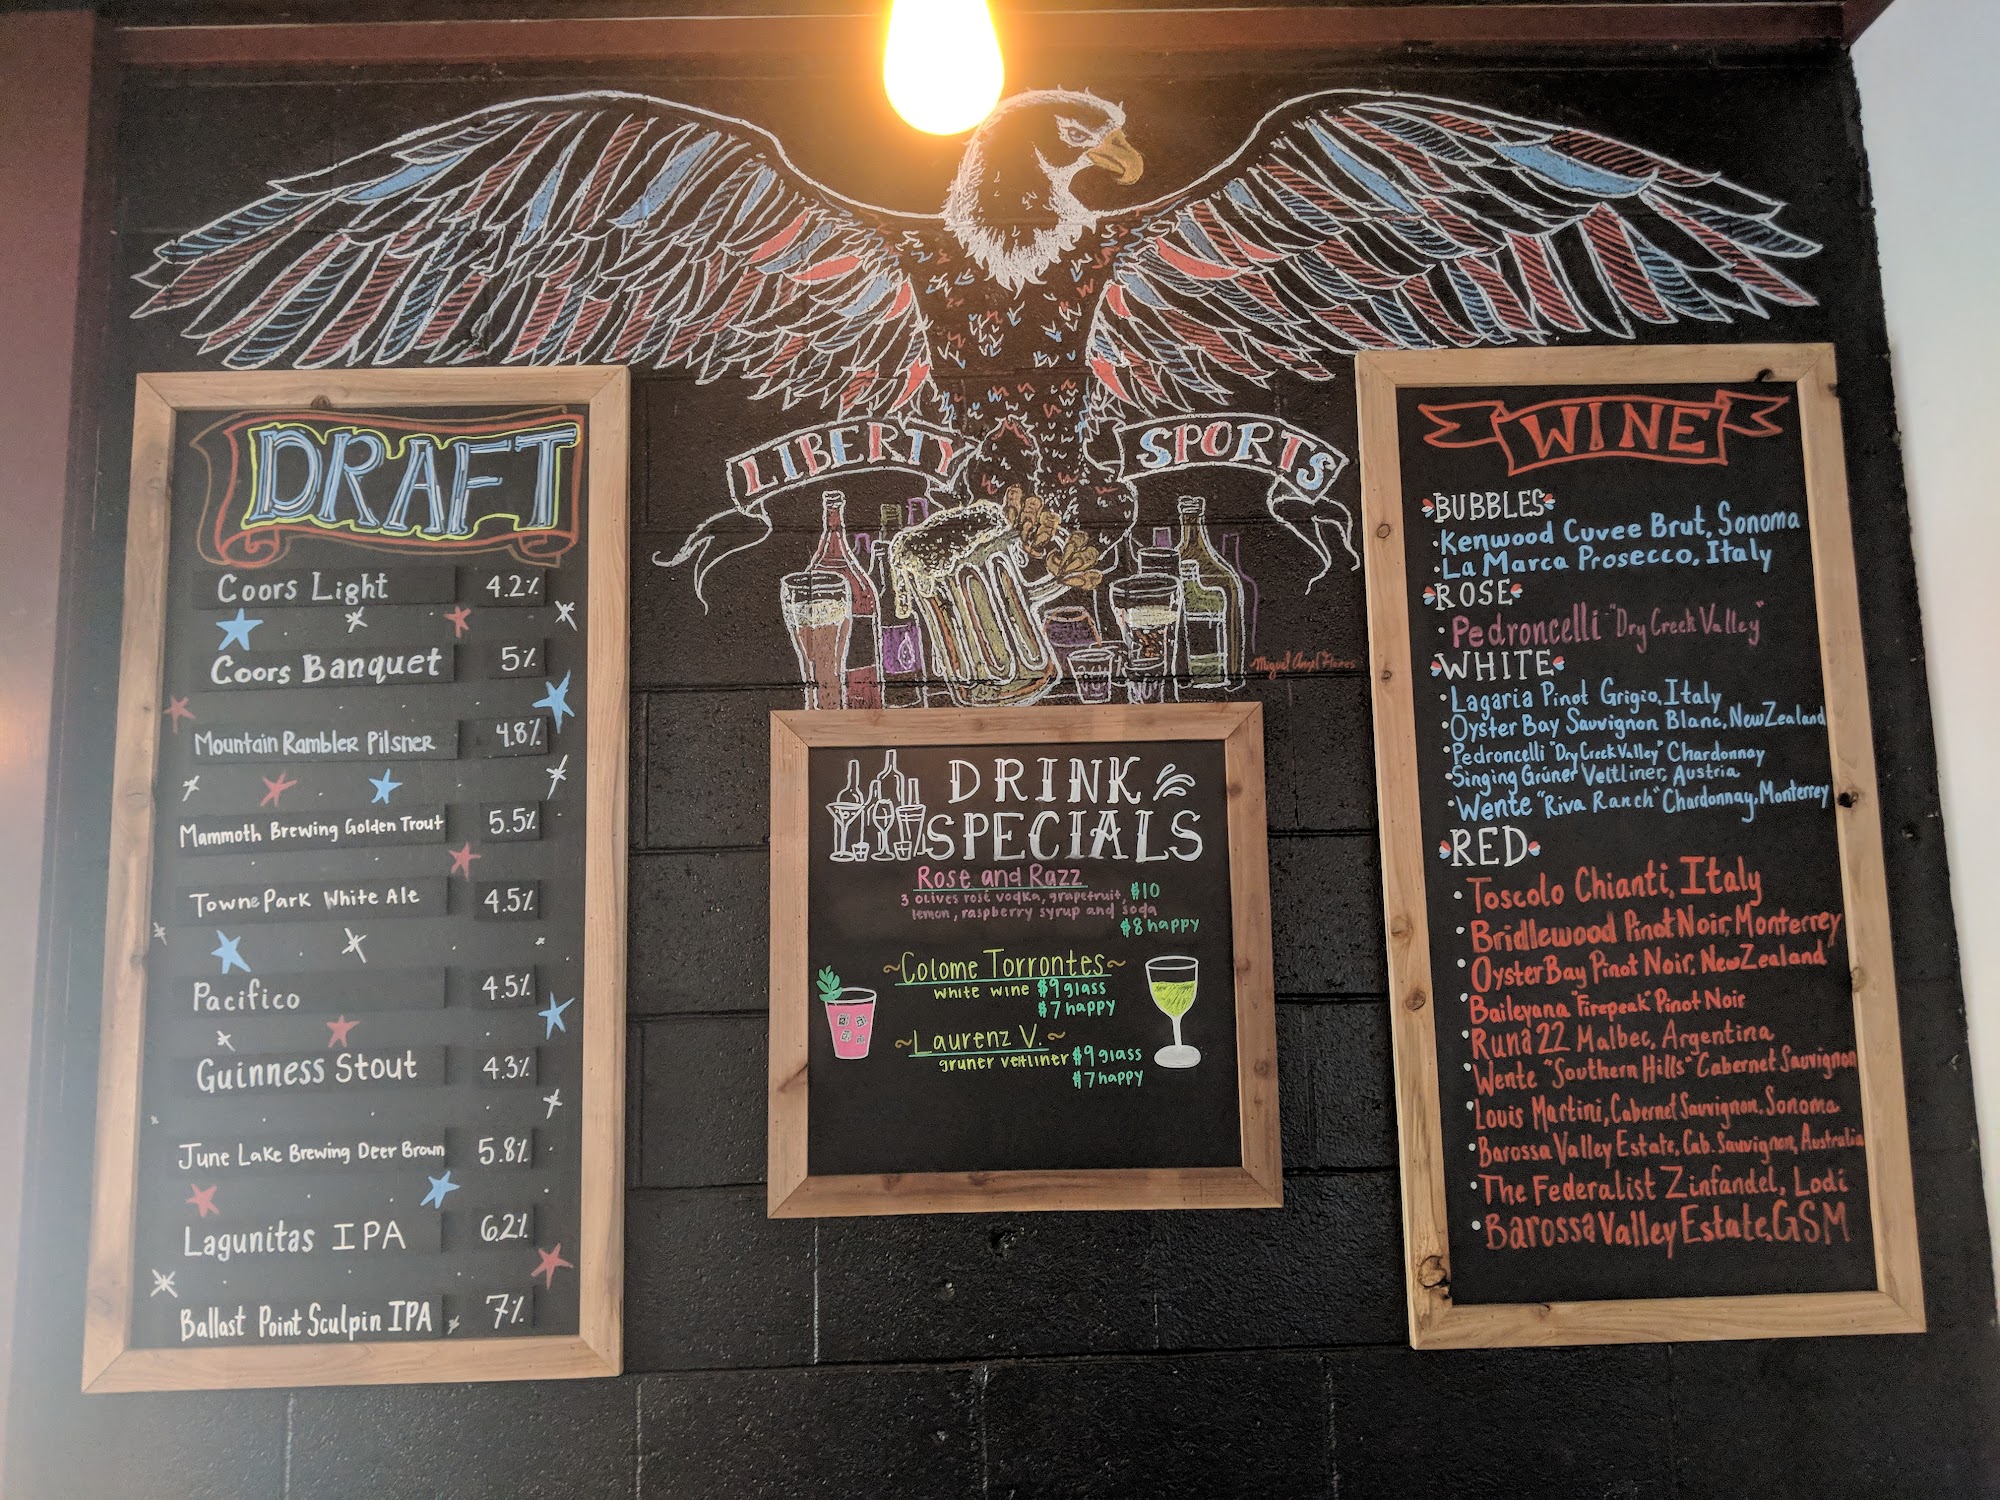 LIBERTY SPORTS
Miguel Angel Flores
DRAFT
Coors Light 4.2%
Coors Banquet 5%
Mountain Rambler Pilsner 4.8%
Mammoth Brewing Golden Trout 5.5%
Towne Park White Ale 4.5%
Pacifico 4.5%
Guinness Stout 4.3%
June Lake Brewing Deer Brown 5.8%
Lagunitas IPA 6.2%
Ballast Point Sculpin IPA 7%
DRINK
SPECIALS
Rose and Razz
3 olives rosé vodka, grapefruit, $10
lemon, raspberry syrup and soda
$8 happy
~Colome Torrontes~
white wine $9 glass
$7 happy
~Laurenz V.~
gruner veltliner $9 glass
$7 happy
WINE
BUBBLES
·Kenwood Cuvee Brut, Sonoma
·La Marca Prosecco, Italy
ROSE
·Pedroncelli "Dry Creek Valley"
WHITE
·Lagaria Pinot Grigio, Italy
·Oyster Bay Sauvignon Blanc, New Zealand
·Pedroncelli "Dry Creek Valley" Chardonnay
·Singing Grüner Veltliner, Austria
·Wente "Riva Ranch" Chardonnay, Monterrey
RED
·Toscolo Chianti, Italy
·Bridlewood Pinot Noir, Monterrey
·Oyster Bay Pinot Noir, New Zealand
·Baileyana "Firepeak" Pinot Noir
·Runa 22 Malbec, Argentina
·Wente "Southern Hills" Cabernet Sauvignon
·Louis Martini, Cabernet Sauvignon, Sonoma
·Barossa Valley Estate, Cab. Sauvignon, Australia
·The Federalist Zinfandel, Lodi
·Barossa Valley Estate, GSM